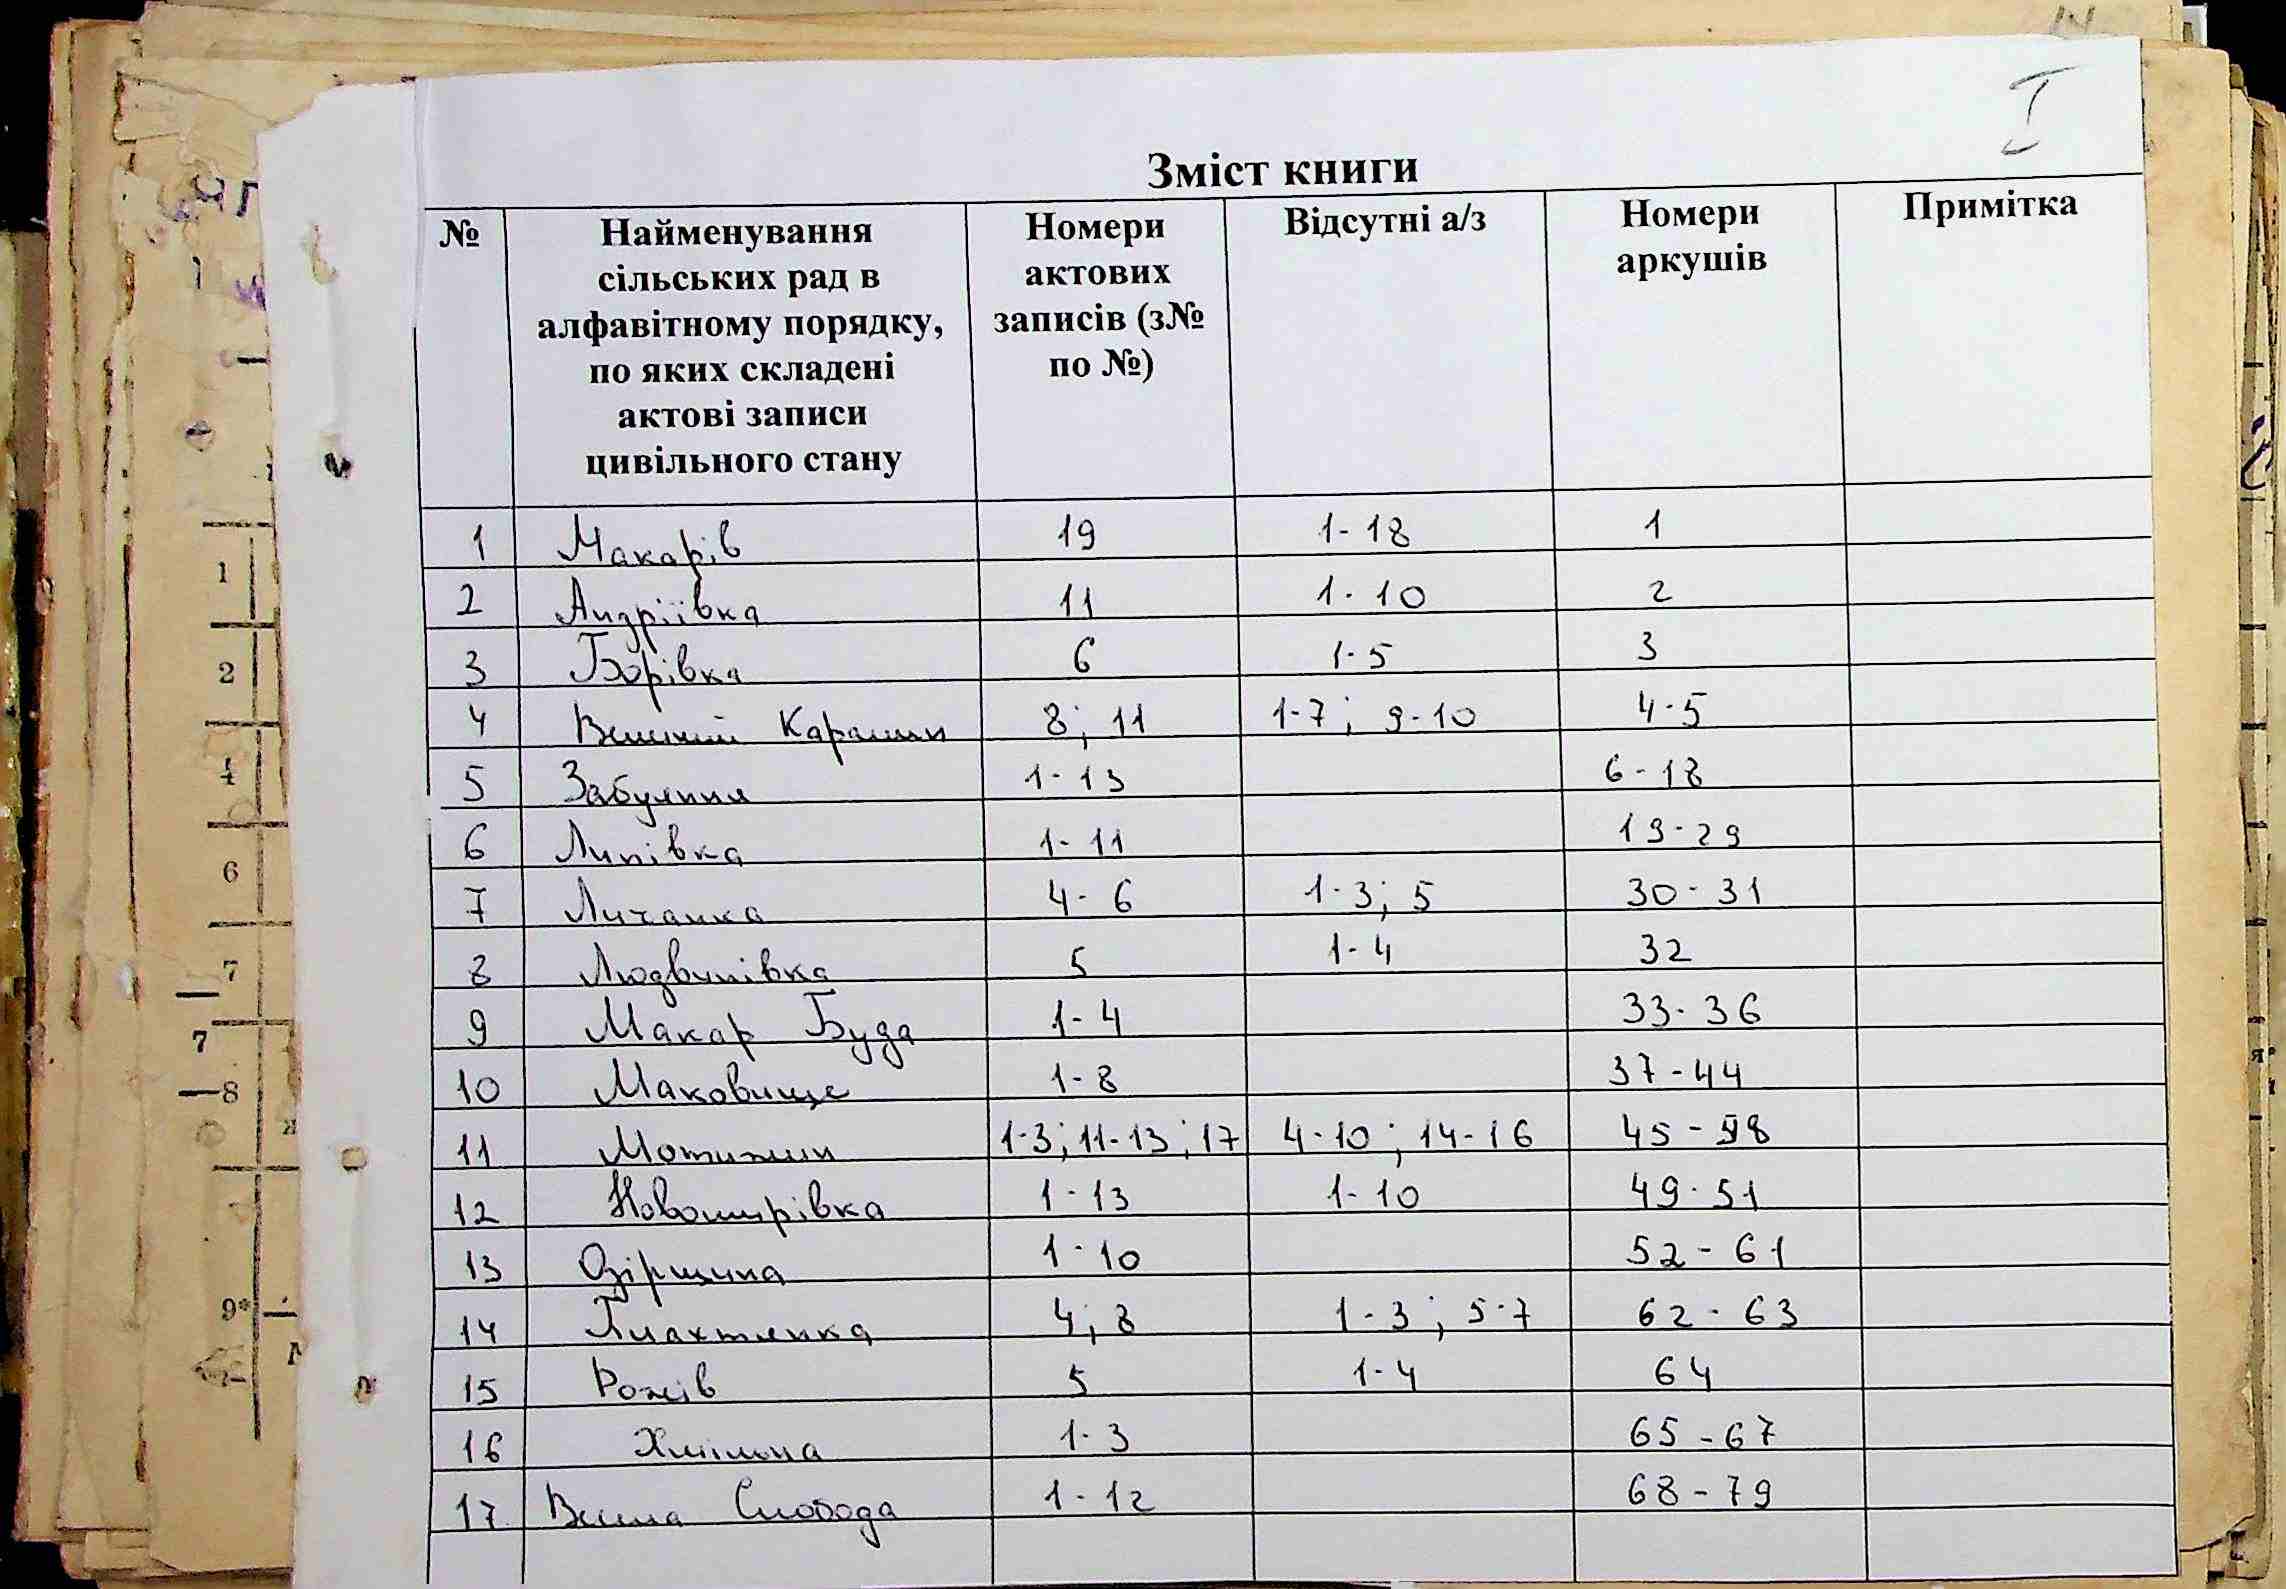 14
I
Зміст книги
№ Найменування сільських рад в алфавітному порядку, по яких складені актові записи цивільного стану Номери актових записів (з№ по №) Відсутні а/з Номери аркушів Примітка
1 Макарів 19 1-18 1
2 Андріївка 11 1-10 2
3 Борівка 6 1-5 3
4 Великий Карашин 8; 11 1-7; 9-10 4-5
5 Забуяння 1-13 6-18
6 Липівка 1-11 19-29
7 Личанка 4-6 1-3; 5 30-31
8 Людвинівка 5 1-4 32
9 Макар Буда 1-4 33-36
10 Маковище 1-8 37-44
11 Мотижин 1-3; 11-13; 17 4-10; 14-16 45-
12 Новомирівка 1-13 1-10 49-51
13 Озірщина 1-10 52-61
14 Плахтянка 4; 8 1-3; 5-7 62-63
15 Рожів 5 1-4 64
16 Хмільна 1-3 65-67
17 Вільна Слобода 1-12 68-79
1
2
4
6
7
7
8
9*